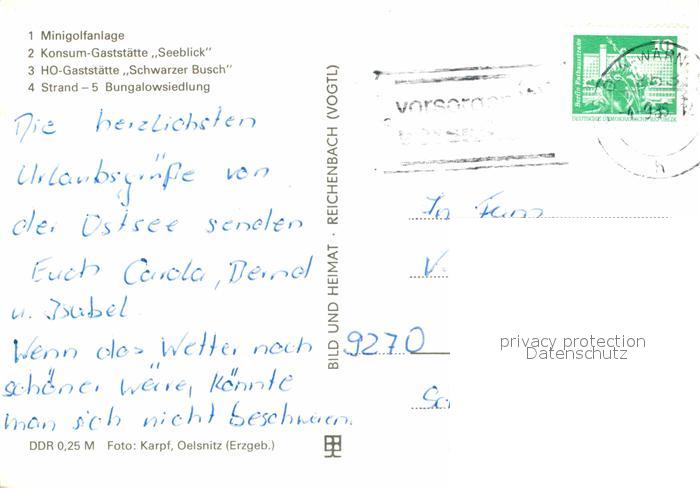 1 Minigolfanlage
2 Konsum-Gaststätte „Seeblick"
3 HO-Gaststätte „Schwarzer Busch"
4 Strand – 5 Bungalowsiedlung
Die herzlichsten
Urlaubsgrüße von
der Ostsee senden
Euch Carola, Bernd
u. Isabel.
Wenn das Wetter noch
schöner wäre, könnte
man sich nicht beschweren.
DDR 0,25 M Foto: Karpf, Oelsnitz (Erzgeb.)
BILD UND HEIMAT · REICHENBACH (VOGTL)
vorsorgen
10
Berlin, Rathausstraße
DEUTSCHE DEMOKRATISCHE REPUBLIK
WARN
h
Fam
V.
9270
privacy protection
Datenschutz